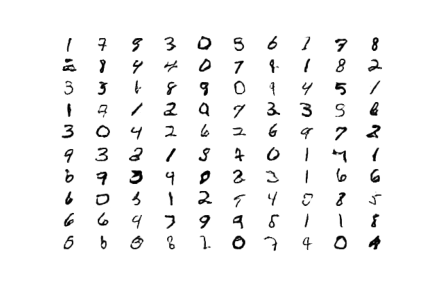 1 7 9 3 0 5 6 1 7 8
2 8 4 4 0 7 8 1 8 2
3 3 6 8 9 0 9 4 5 1
1 9 1 2 0 7 3 3 5 6
3 0 4 2 6 2 6 9 7 2
9 3 2 1 5 7 0 1 7 1
6 9 3 9 0 3 1 6 6
6 0 5 1 2 5 4 0 8 5
6 6 4 7 9 9 8 1 1 8
0 6 0 8 1 0 7 4 0 4